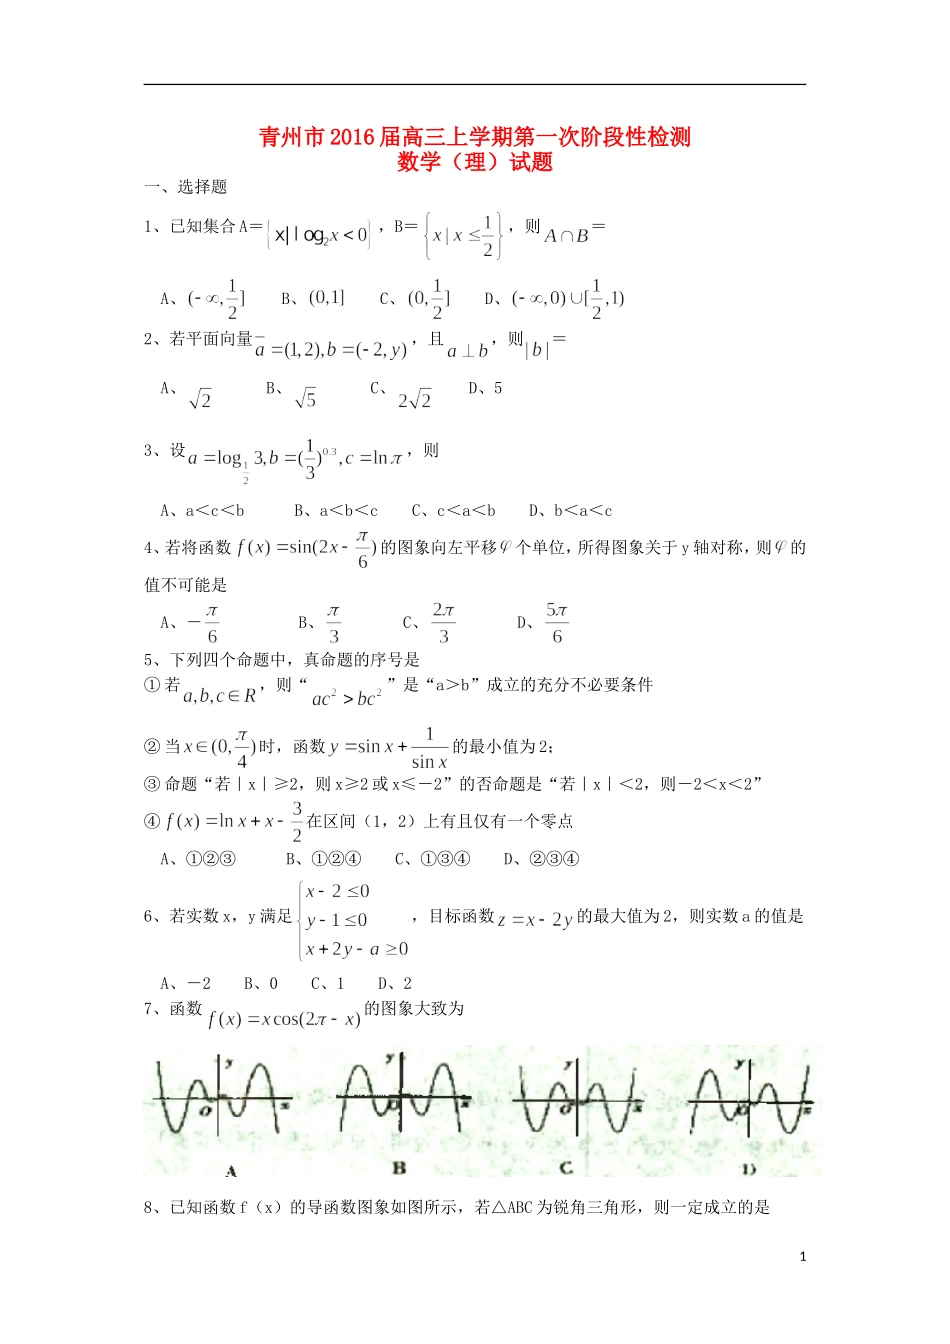 青州市 2016 届高三上学期第一次阶段性检测
数学（理）试题
一、选择题
1、已知集合 A＝{x|log₂x<0}，B＝{x|x≤1/2}，则 A∩B＝
A、(-∞,1/2] B、(0,1] C、(0,1/2] D、(-∞,0)∪[1/2,1)
2、若平面向量 a=(1,2),b=(-2,y)，且 a⊥b，则|b|＝
A、√2 B、√5 C、2√2 D、5
3、设 a=log_{1/2}3,b=(1/3)^{0.3},c=lnπ，则
A、a＜c＜b B、a＜b＜c C、c＜a＜b D、b＜a＜c
4、若将函数 f(x)=sin(2x-π/6)的图象向左平移φ个单位，所得图象关于 y 轴对称，则φ的
值不可能是
A、－π/6 B、π/3 C、2π/3 D、5π/6
5、下列四个命题中，真命题的序号是
① 若 a,b,c∈R，则“ac²>bc²”是“a＞b”成立的充分不必要条件
② 当 x∈(0,π/4)时，函数 y=sin x+1/sin x 的最小值为 2；
③ 命题“若｜x｜≥2，则 x≥2 或 x≤－2”的否命题是“若｜x｜＜2，则－2＜x＜2”
④ f(x)=ln x+x-3/2 在区间（1，2）上有且仅有一个零点
A、①②③ B、①②④ C、①③④ D、②③④
6、若实数 x，y 满足{x-2≤0 y-1≤0 x+2y-a≥0，目标函数 z=x-2y 的最大值为 2，则实数 a 的值是
A、－2 B、0 C、1 D、2
7、函数 f(x)=xcos(2π-x)的图象大致为
y y y y
O x O x O x O x
A B C D
8、已知函数 f（x）的导函数图象如图所示，若△ABC 为锐角三角形，则一定成立的是
1